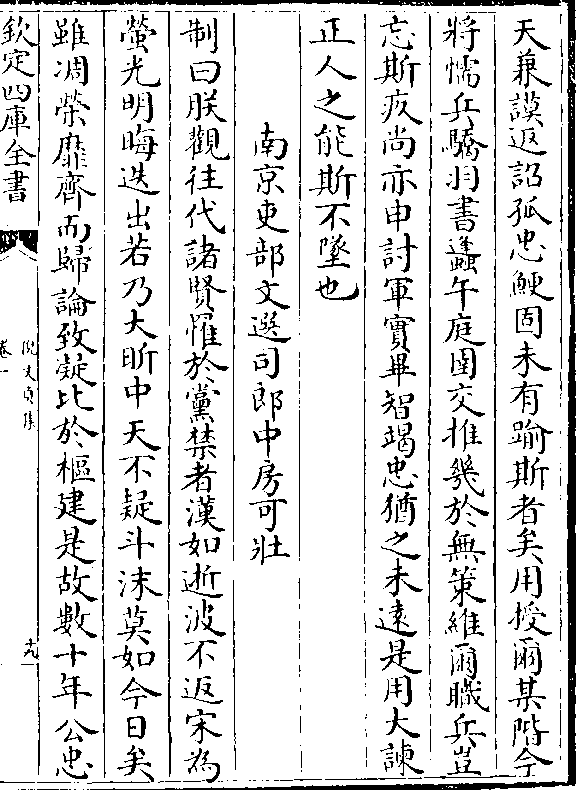 天兼謨返詔孤忠鯁固未有踰斯者矣用授爾某階今
將懦兵驕羽書蠭午庭圉交推幾於無策維爾職兵豈
忘斯疚尚亦申討軍實畢智竭忠猶之未遠是用大諫
正人之能斯不墜也
南京吏部文選司郎中房可壯
制曰朕觀往代諸賢罹於黨禁者漢如逝波不返宋為
螢光明晦迭出若乃大昕中天不疑斗沫莫如今日矣
雖凋榮靡齊而歸論致凝比於樞建是故數十年公忠
欽定四庫全書
倪文貞集
卷一
十九